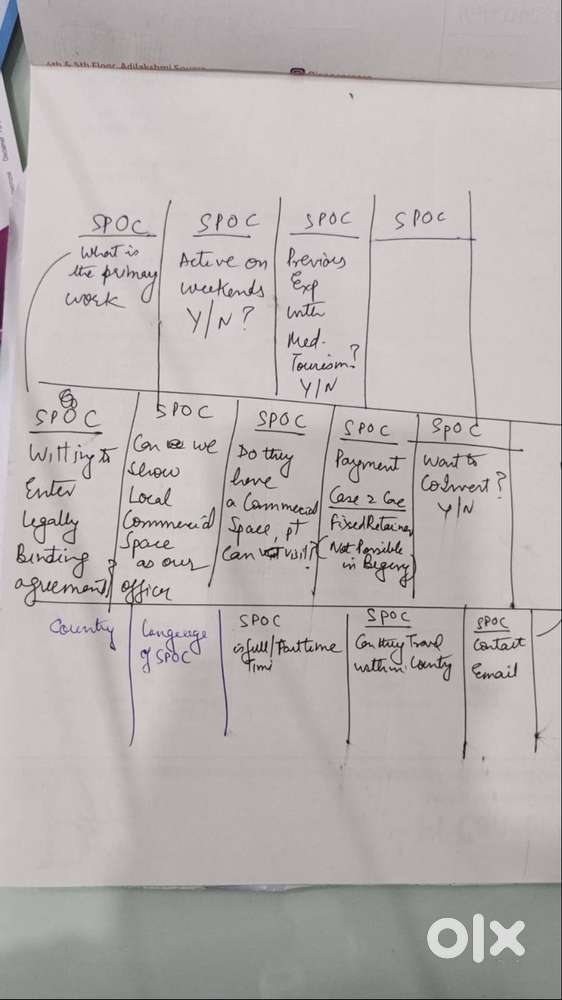 4th & 5th Floor, Adilakshmi Square
SPOC
What is
the primary
work
SPOC
Active on
weekends
Y/N ?
SPOC
Previous
Exp
into
Med.
Tourism?
Y/N
SPOC
SPOC
Willing to
Enter
legally
Binding
agreements?
SPOC
Can we
show
Local
Commercial
Space
as our
office
SPOC
Do they
have
a Commercial
Space, pt
can visit?
SPOC
Payment
Case 2 Case
Fixed Retainer
(Not Possible
in Begeng)
SPOC
Want to
CoInvert?
Y/N
Country
Language
of SPOC
SPOC
is full/Parttime
Time
SPOC
Can they Travel
within County
SPOC
Contact
Email
olx